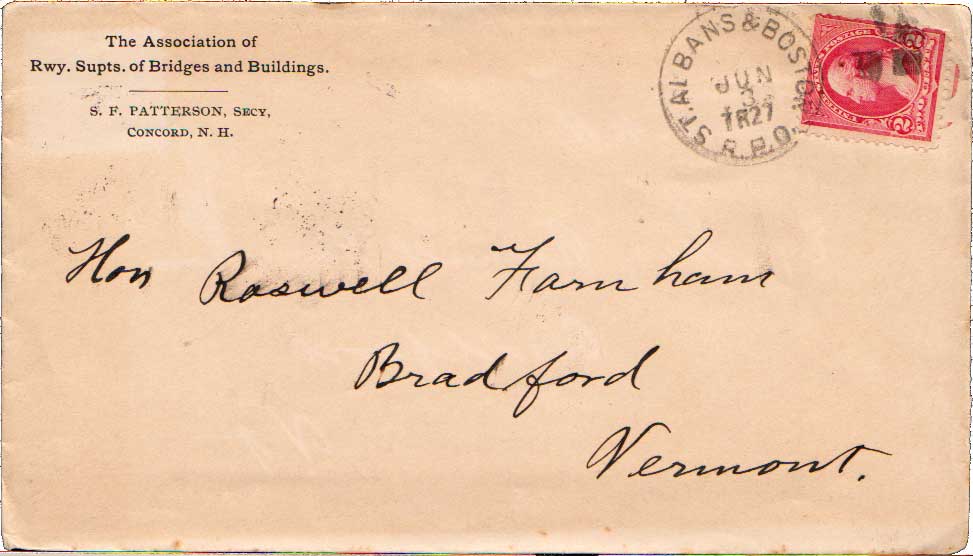 The Association of
Rwy. Supts. of Bridges and Buildings.
S. F. PATTERSON, SECY,
CONCORD, N. H.
ST. ALBANS & BOSTON
JUN
3
R.P.O.
UNITED STATES POSTAGE
2
Hon Roswell Farnham
Bradford
Vermont.